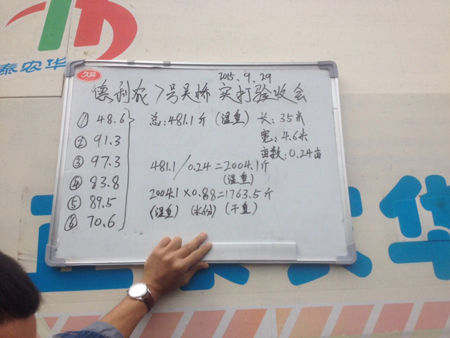 泰农华
久和
2015.9.29
德利农7号吴桥 实打验收会
① 48.6
② 91.3
③ 97.3
④ 83.8
⑤ 89.5
⑥ 70.6
总:481.1斤 (湿重)
长:35米
宽:4.6米
亩数:0.24亩
481.1/0.24=2004.1斤
(湿重)
2004.1×0.88=1763.5斤
(湿重) (水份) (干重)
华